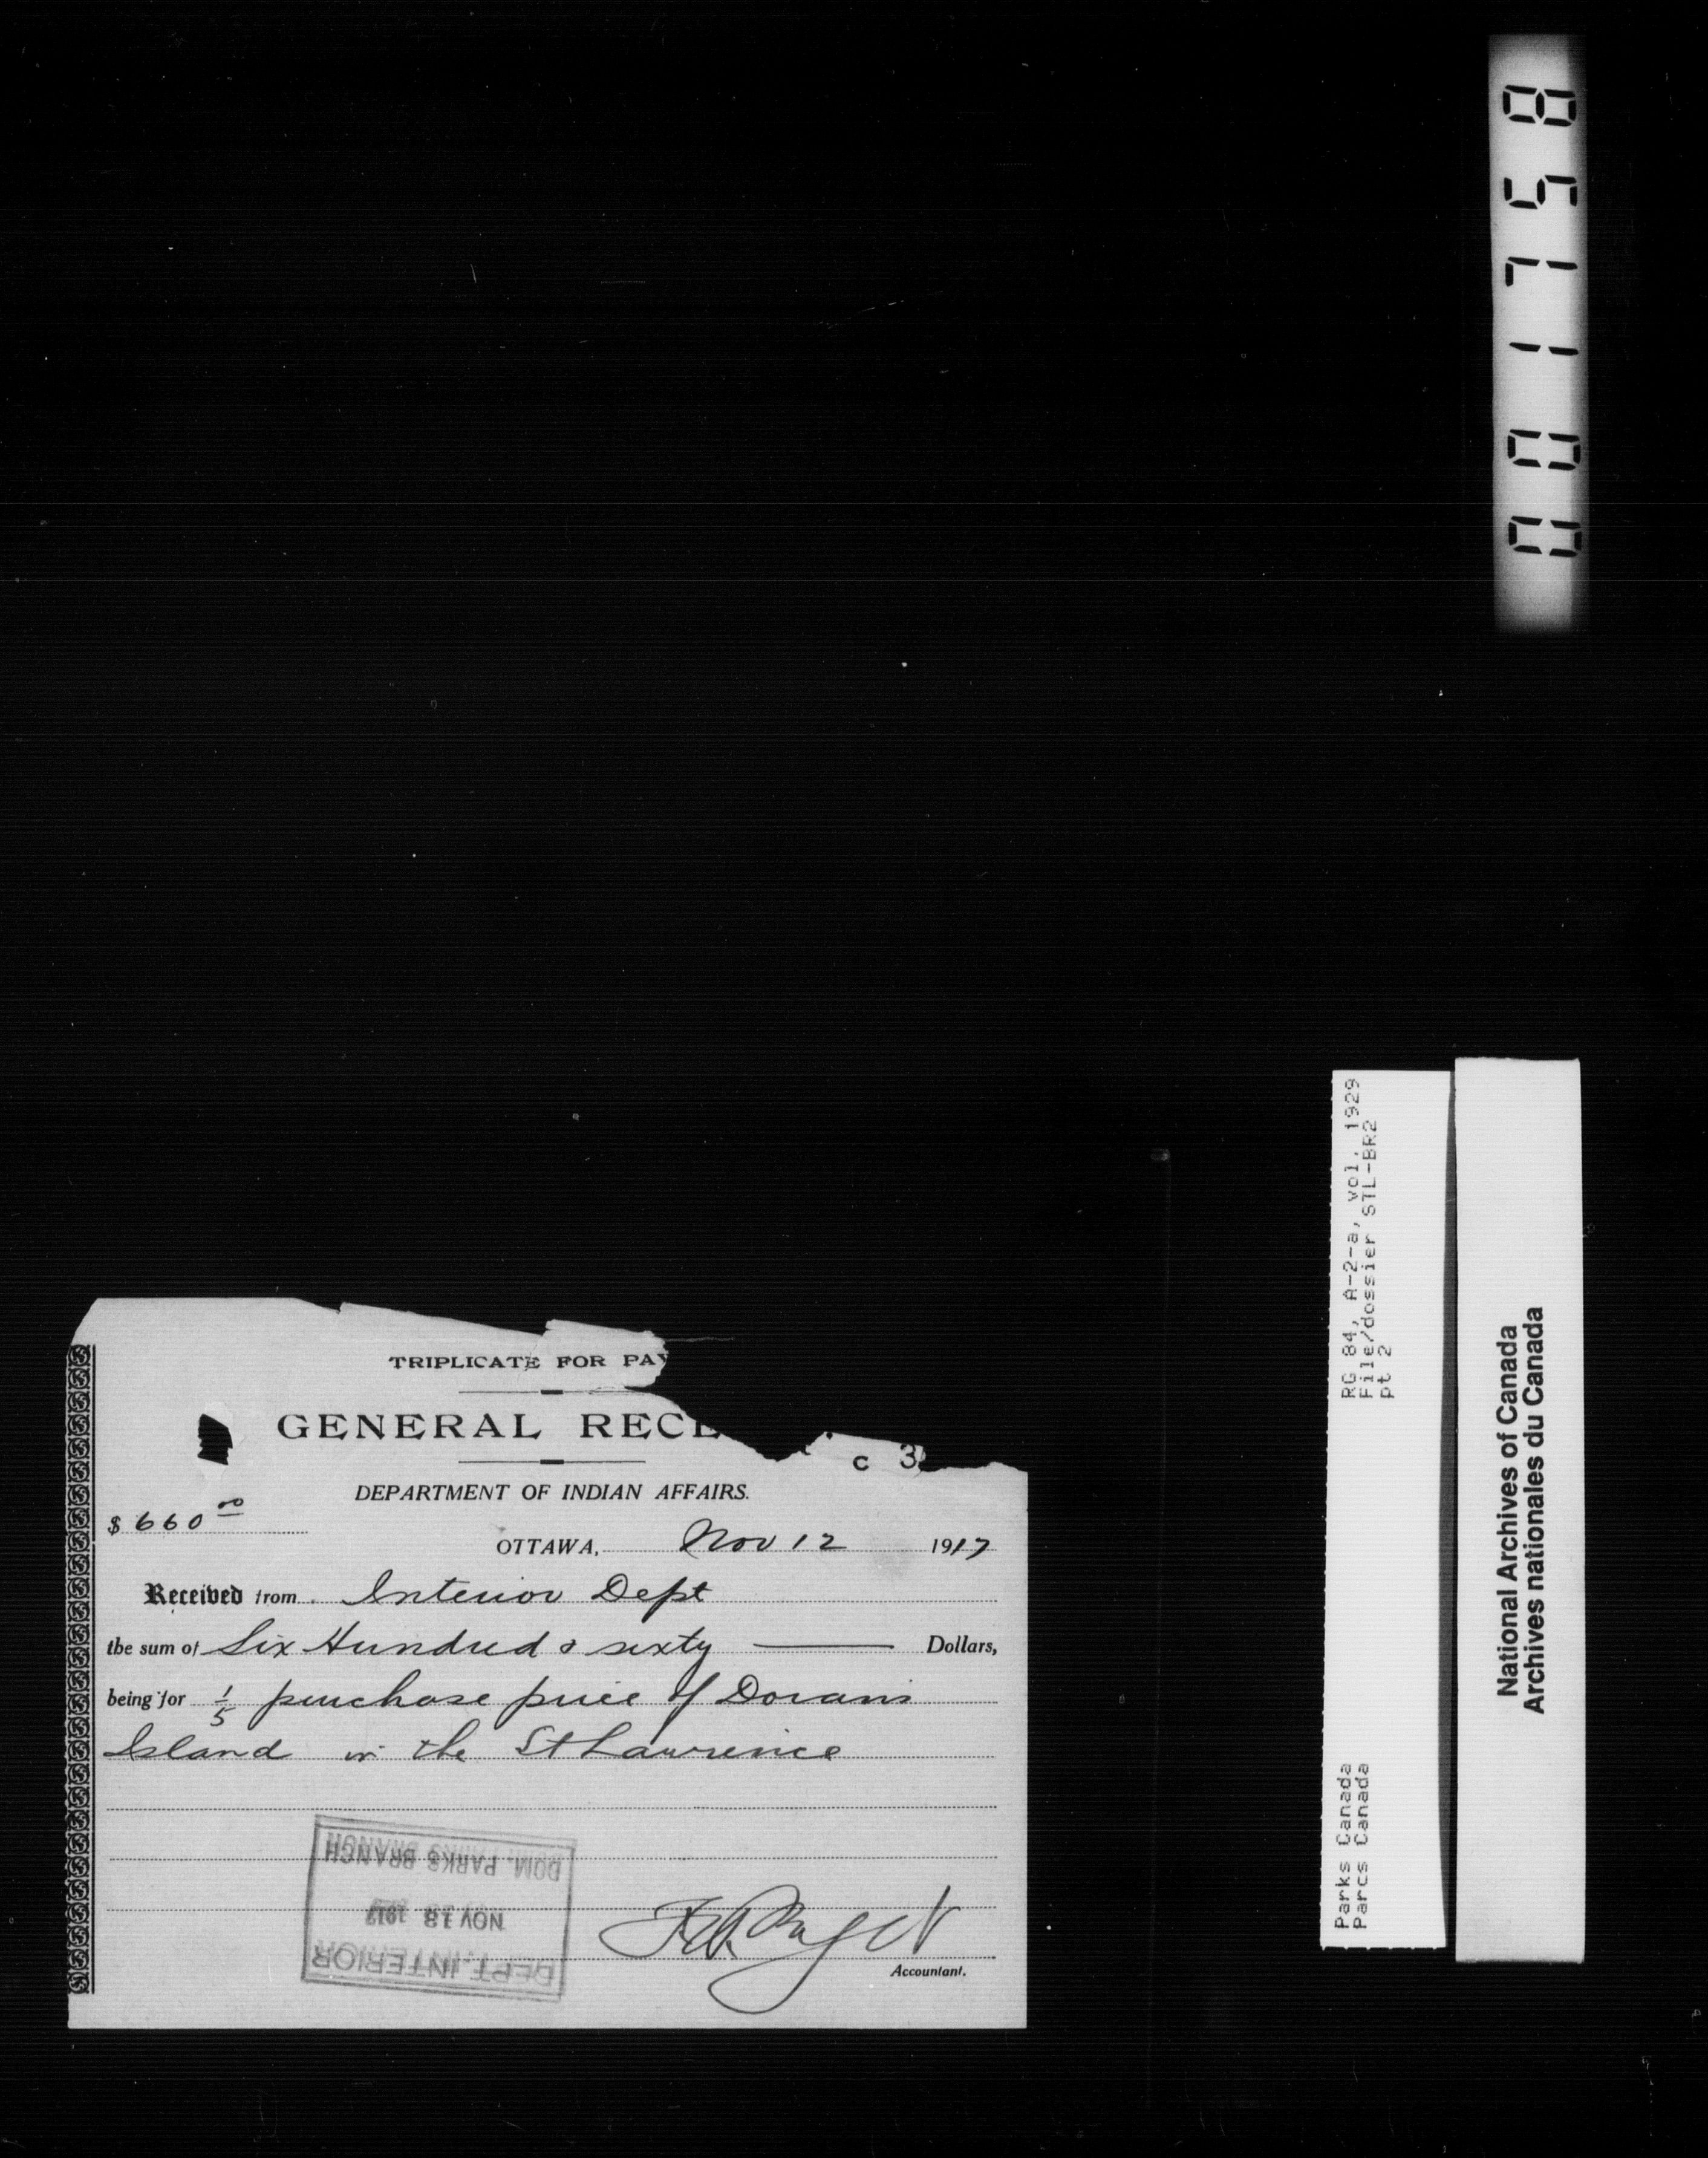 001758
TRIPLICATE FOR PAY
GENERAL RECE
c 3
DEPARTMENT OF INDIAN AFFAIRS.
$ 660 00
OTTAWA, Nov 12 1917
Received from Interior Dept
the sum of Six Hundred & sixty Dollars,
being for 1/5 purchase price of Dorans
Island in the St Lawrence
DOM. PARKS BRANCH
NOV 13 1917
DEPT. INTERIOR
Accountant.
RG 84, A-2-a, vol. 1929
File/dossier STL-BR2
pt 2
Parks Canada
Parcs Canada
National Archives of Canada
Archives nationales du Canada